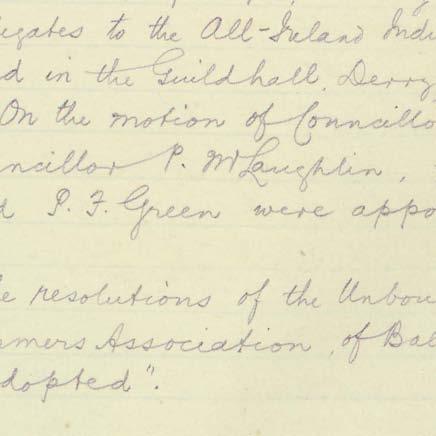 legates to the All-Ireland Indu
d in the Guildhall, Derry
On the motion of Councillo
ncillor P. McLaughlin,
d P. F. Green were appo
e resolutions of the Unbou
rmers Association, of Bal
dopted".